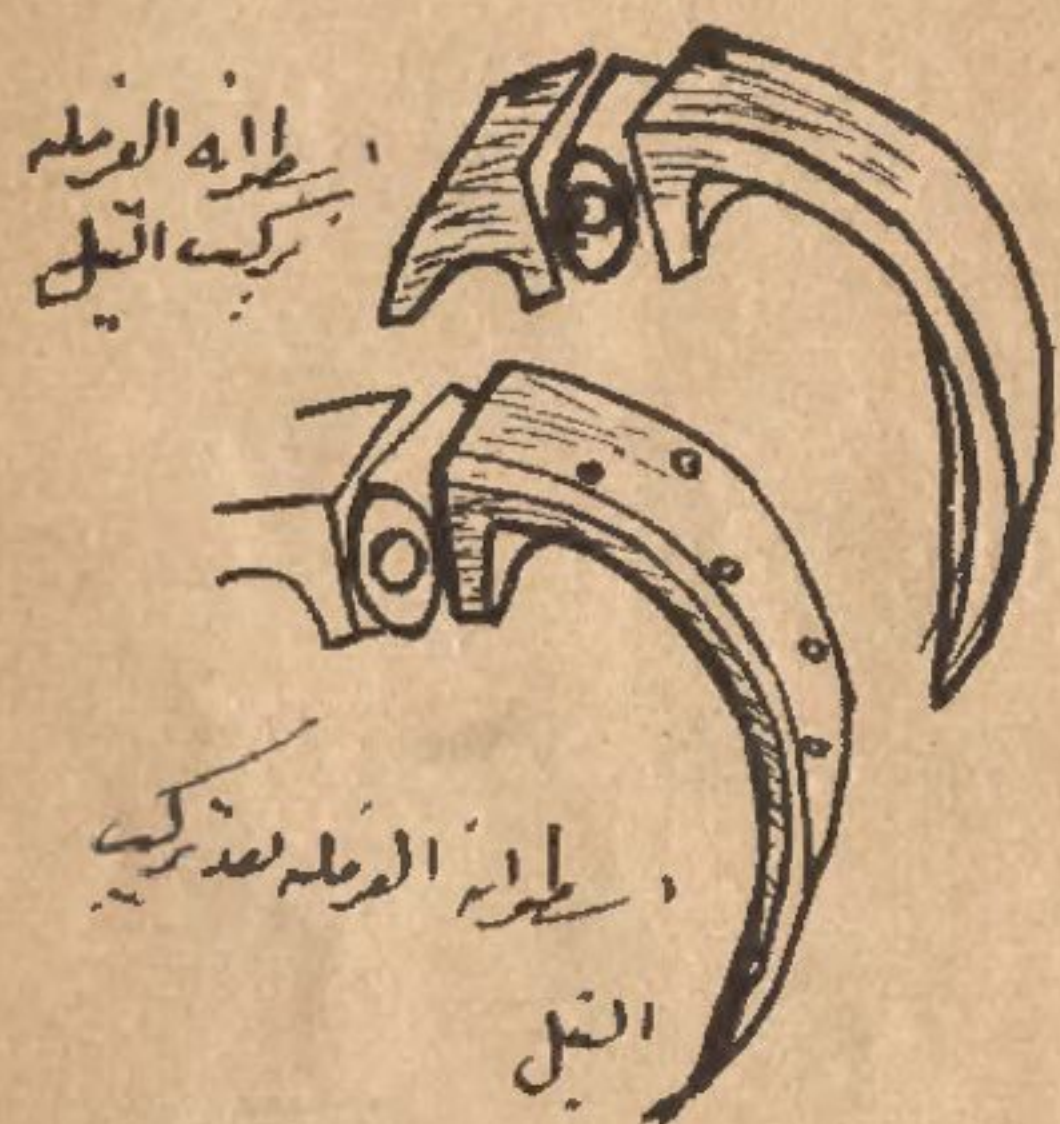 اسطوانه الفرمله
تركيب التيل
اسطوانه الفرمله بعد تركيب
التيل